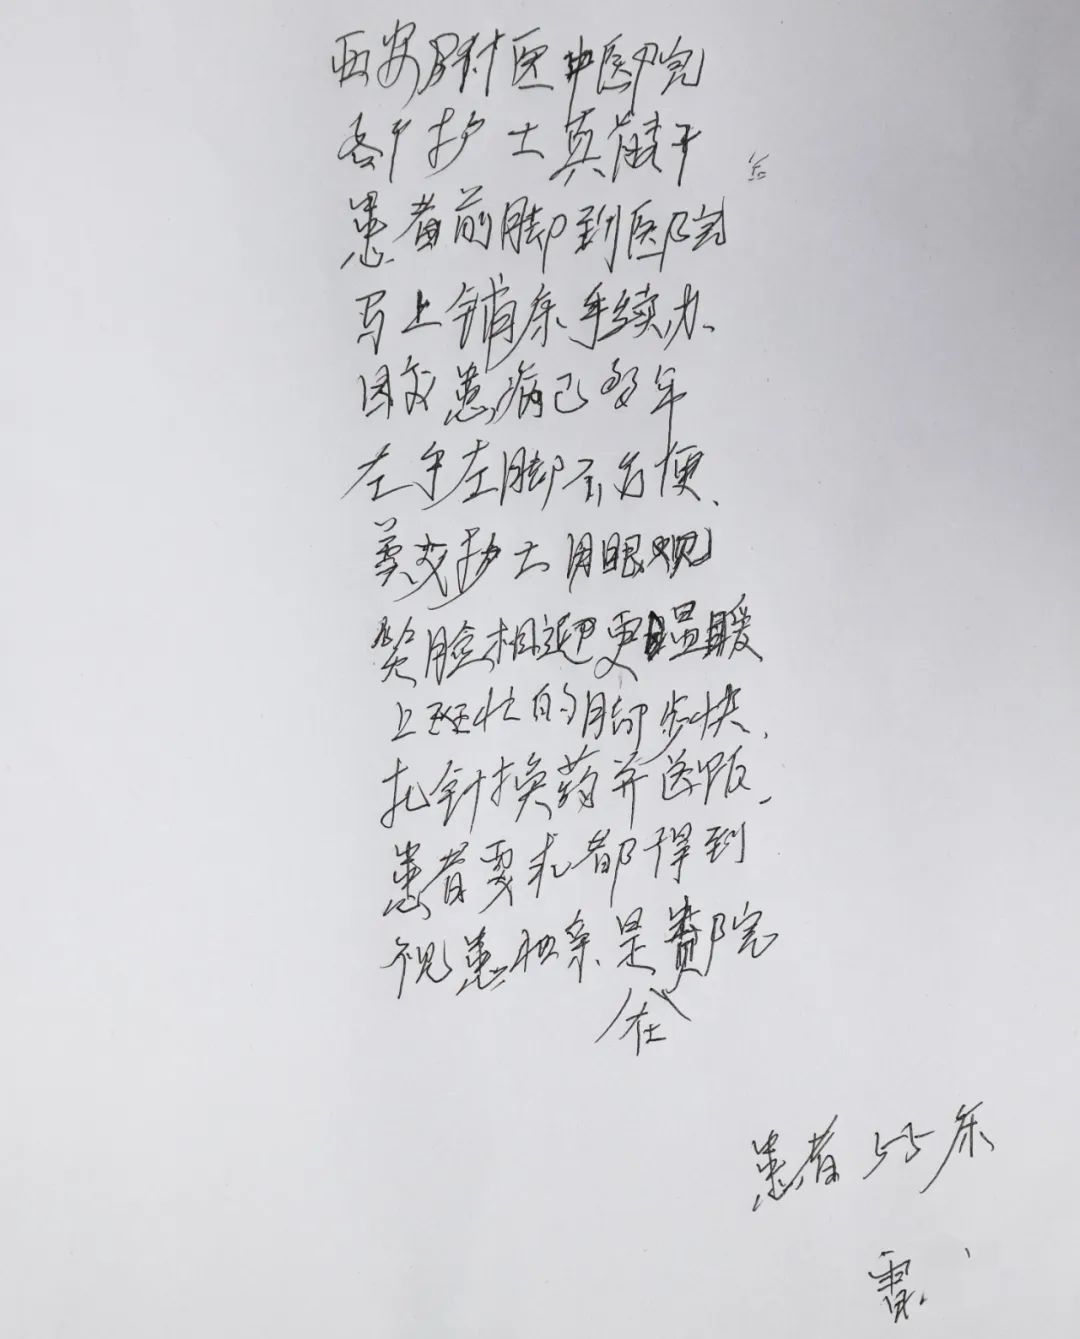 西安附医中医院
护士真能干
患者前脚到医院
马上铺床手续办
因我患病已多年
左手左脚不方便
美文护士用眼观
笑脸相迎更温暖
上班忙的脚步快
扎针换药并送饭
患者要求都得到
视患如亲是贵院
在
患者 55床